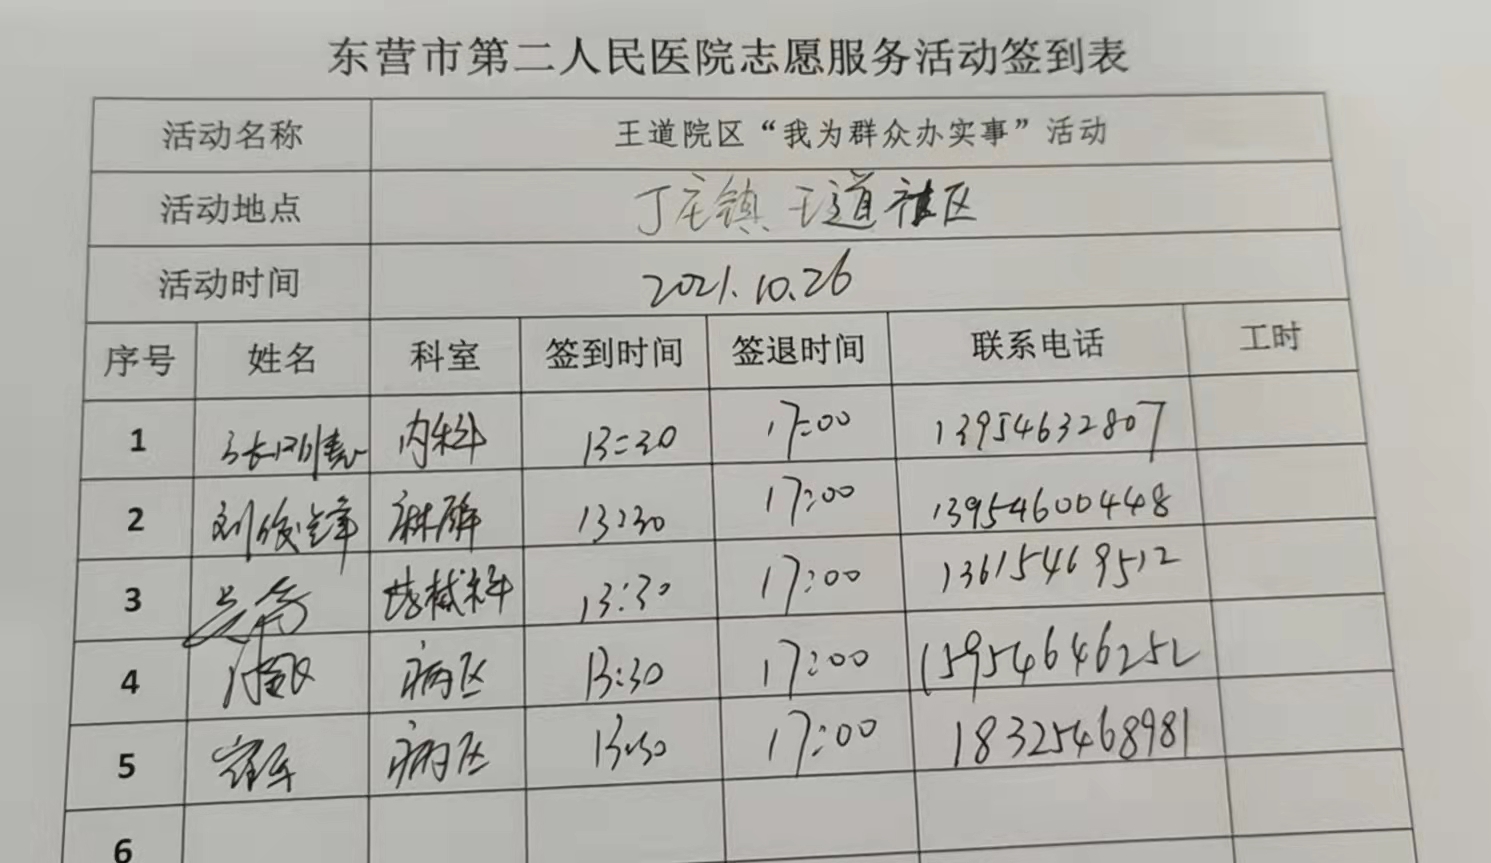 东营市第二人民医院志愿服务活动签到表
活动名称 王道院区“我为群众办实事”活动
活动地点 丁庄镇 王道社区
活动时间 2021.10.26
序号 姓名 科室 签到时间 签退时间 联系电话 工时
1 内科 13:30 17:00 13954632807
2 刘俊锋 麻醉 13:30 17:00 13954600448
3 13:30 17:00 13615469512
4 病区 13:30 17:00 15954646252
5 病区 13:30 17:00 18325468981
6